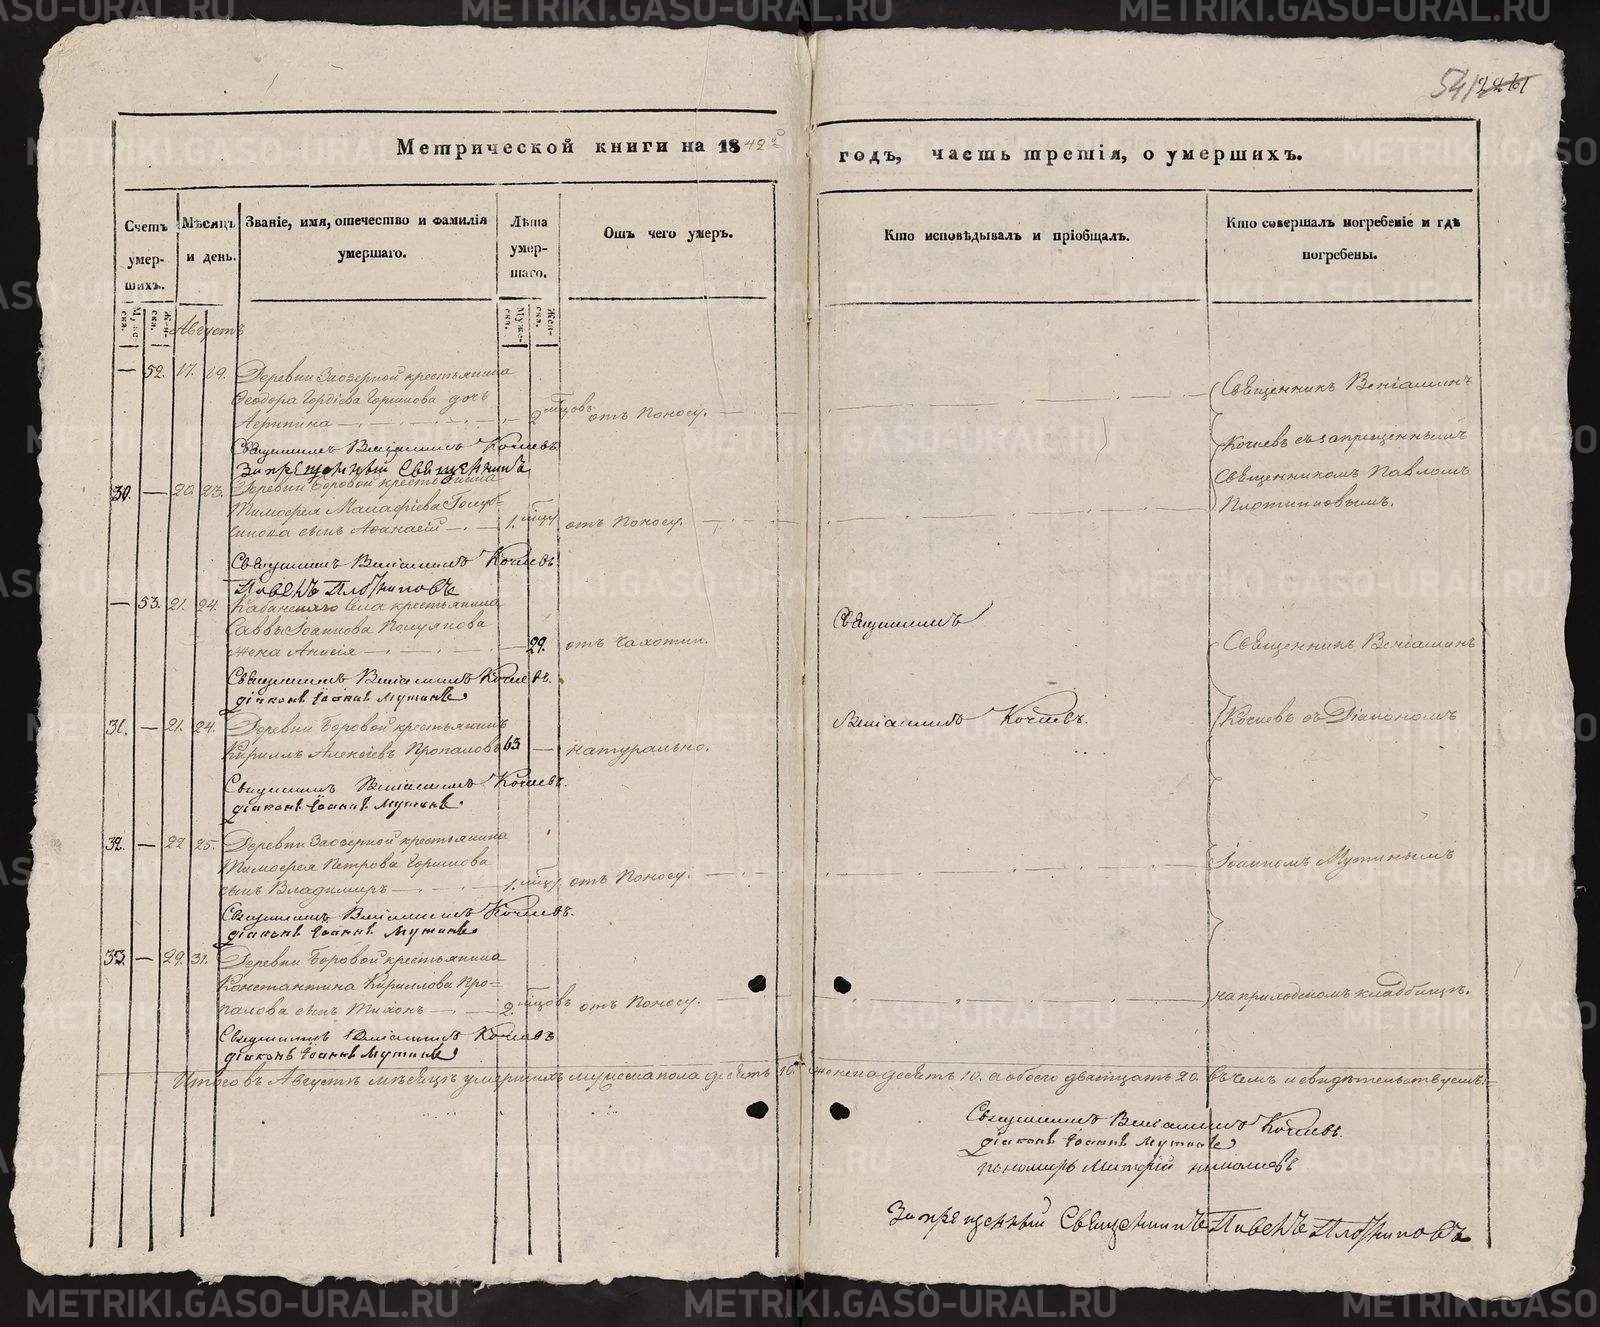 541
Метрической книги на 1842й
годъ, часть третія, о умершихъ.
Счетъ умер-шихъ.
Мѣсяцъ и день.
Званіе, имя, отечество и фамилія умершаго.
Лѣта умер-шаго.
Отъ чего умеръ.
Кто исповѣдывалъ и пріобщалъ.
Кто совершалъ погребеніе и гдѣ погребены.
Муже-ска.
Жен-ска.
Муже-ска.
Жен-ска.
Августъ
— 52. 17. 19. Деревни Заозерной крестьянина
Ѳеодора Гордѣева Горшкова дочь
2 мцовъ отъ поносу.
Священникъ Веніаминъ Кочневъ
Запрещенный Священникъ
30. — 20. 23. Деревни Боровой крестьянина
сынъ Аѳанасій — 1. мцу отъ поносу.
Священникъ Веніаминъ Кочневъ
Павелъ Плотниковъ
Священникъ Веніаминъ
Кочневъ съ запрещеннымъ
Священникомъ Павломъ
Плотниковымъ.
— 53. 21. 24. Кабанскаго села крестьянина
Саввы Іоаннова Полуянова
жена Анисія — 29. отъ чахотки.
Священникъ Веніаминъ Кочневъ.
діаконъ Іоаннъ Мутинъ
31. — 21. 24. Деревни Боровой крестьянинъ
Кириллъ Алексѣевъ Пропаловъ 65 — натурально.
Священникъ Веніаминъ Кочневъ.
діаконъ Іоаннъ Мутинъ.
Священникъ
Веніаминъ Кочневъ.
Священникъ Веніаминъ
Кочневъ съ Діакономъ
32. — 22 25. Деревни Заозерной крестьянина
Тимоѳея Петрова Горшкова
сынъ Владимиръ — 1. мцу отъ поносу.
Священникъ Веніаминъ Кочневъ.
діаконъ Іоаннъ Мутинъ
Іоанномъ Мутинымъ
33. — 29. 31. Деревни Боровой крестьянина
Константина Кириллова Про-
палова сынъ Тихонъ — 2. мцовъ отъ поносу.
Священникъ Веніаминъ Кочневъ
діаконъ Іоаннъ Мутинъ
на приходскомъ кладбищѣ.
Итого въ Августѣ мѣсяцѣ умершихъ мужеска пола десять 10. женска десять 10. а обоего двадцать 20. въ чемъ и свидѣтельствуемъ:
Священникъ Веніаминъ Кочневъ.
діаконъ Іоаннъ Мутинъ
Запрещенный Священникъ Павелъ Плотниковъ
METRIKI.GASO-URAL.RU